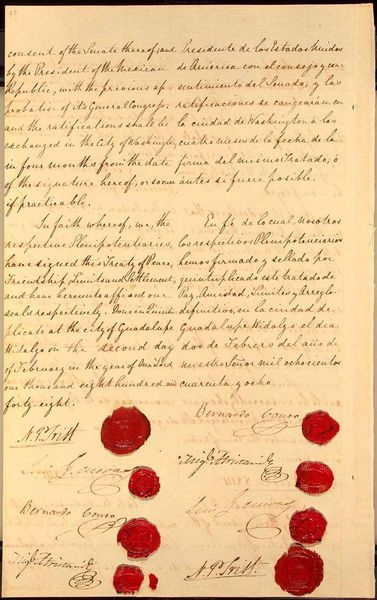 consent of the Senate thereof; and
by the President of the Mexican
Republic, with the previous ap-
probation of its General Congress;
and the ratifications shall be
exchanged in the City of Washington,
in four months from the date
of the signature hereof, or sooner
if practicable.
In faith whereof, we, the
respective Plenipotentiaries,
have signed this Treaty of Peace,
Friendship, Limits and Settlement,
and have hereunto affixed our
seals respectively. Done in Quintu-
plicate at the city of Guadalupe
Hidalgo on the second day
of February in the year of Our Lord
one thousand eight hundred and
forty-eight.
N. P. Trist
Luis G. Cuevas
Bernardo Couto
Migl Atristain
Presidente de los Estados Unidos
de America con el consejo y con-
sentimiento del Senado; y las
ratificaciones se cangearán en
la ciudad de Washington á los
cuatro meses de la fecha de la
firma del mismo Tratado, ó
antes si fuere posible.
En fé de lo cual, nosotros
los respectivos Plenipotenciarios
hemos firmado y sellado por
quintuplicado este tratado de
Paz, Amistad, Limites y Arreglo
definitivo, en la ciudad de
Guadalupe Hidalgo el dia
dos de Febrero del año de
nuestro Señor mil ochocientos
cuarenta y ocho.
Bernardo Couto
Migl Atristain
Luis G. Cuevas
N. P. Trist